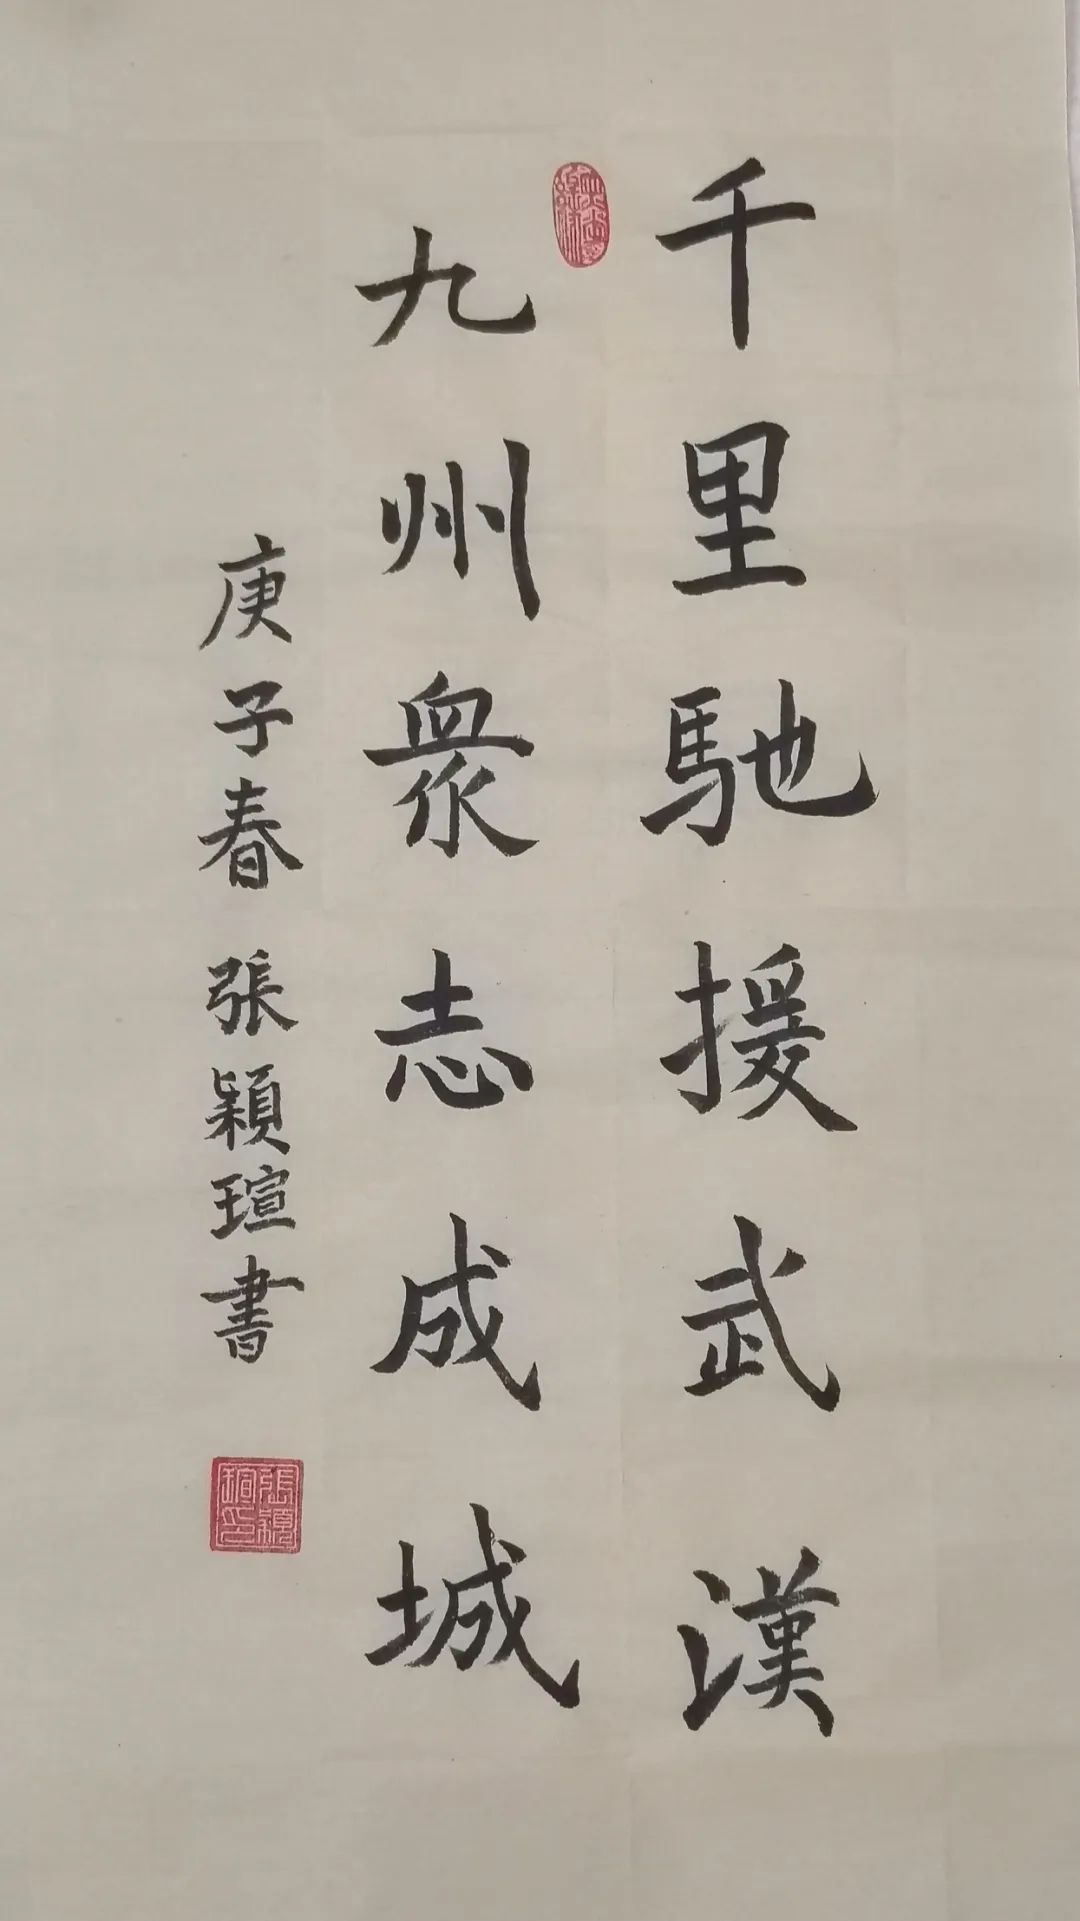 千里馳援武漢
九州衆志成城
庚子春 張穎瑄書